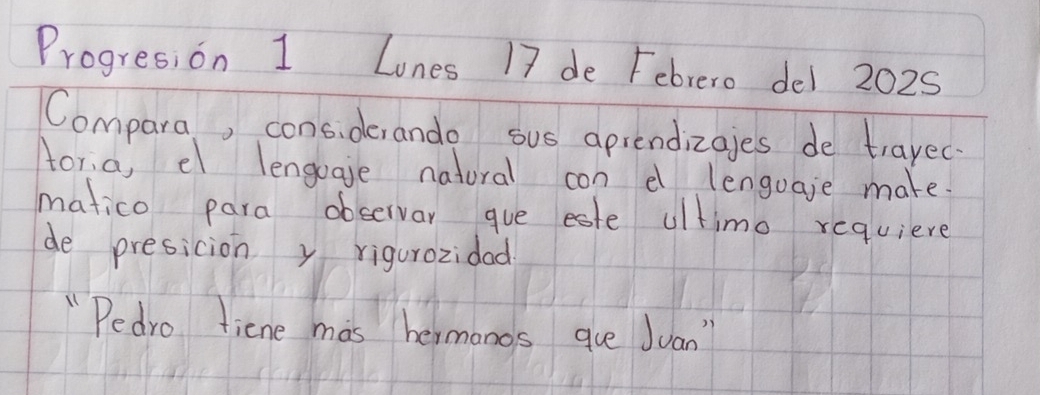 Progresión 1 Lunes 17 de Febrero del 2025
Compara, considerando sus aprendizajes de trayec-
toria, el lenguaje natural con el lenguaje mate-
matico para observar que este ultimo requiere
de presición y rigurozidad.
"Pedro tiene más hermanos que Juan"